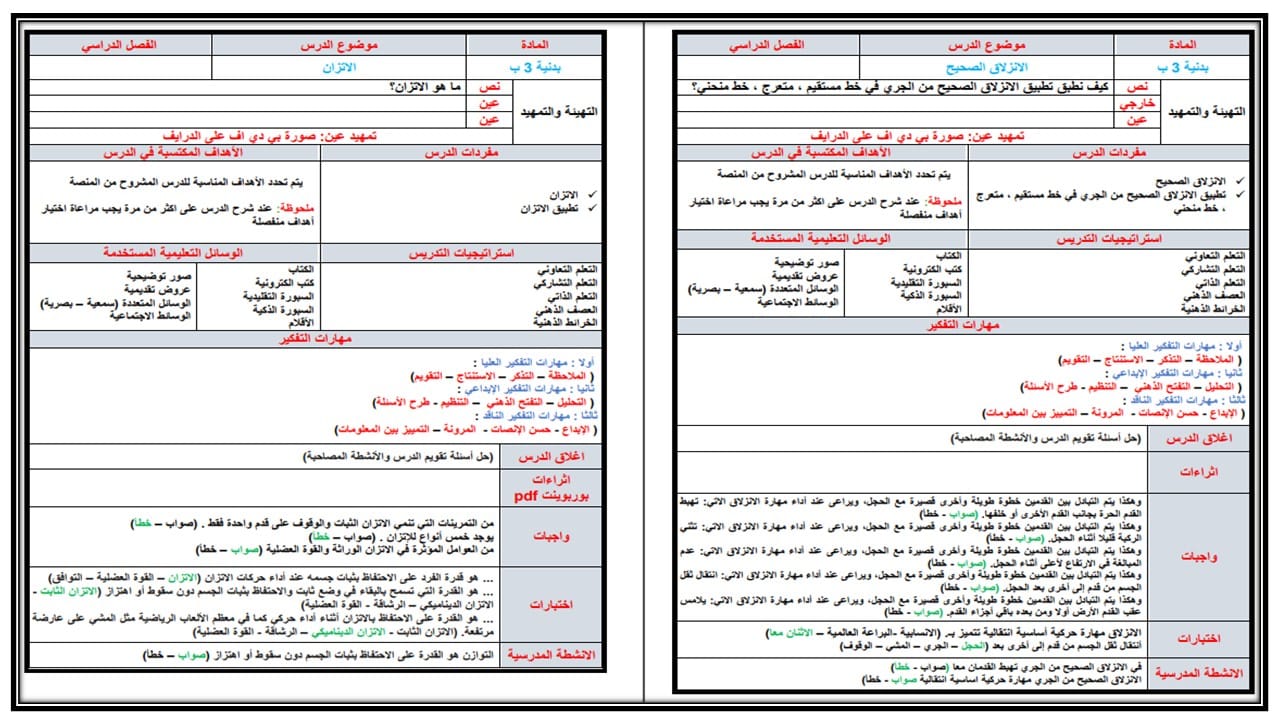 المادة موضوع الدرس الفصل الدراسي
بدنية 3 ب الانزلاق الصحيح
التهيئة والتمهيد
نص كيف نطبق تطبيق الانزلاق الصحيح من الجري في خط مستقيم ، متعرج ، خط منحني؟
خارجي
عين
تمهيد عين: صورة بي دي اف على الدرايف
مفردات الدرس الأهداف المكتسبة في الدرس
✓ الانزلاق الصحيح
✓ تطبيق الانزلاق الصحيح من الجري في خط مستقيم ، متعرج
، خط منحني
يتم تحدد الأهداف المناسبة للدرس المشروح من المنصة
ملحوظة: عند شرح الدرس على اكثر من مرة يجب مراعاة اختيار
أهداف منفصلة
استراتيجيات التدريس الوسائل التعليمية المستخدمة
التعلم التعاوني
التعلم التشاركي
التعلم الذاتي
العصف الذهني
الخرائط الذهنية
الكتاب
كتب الكترونية
السبورة التقليدية
السبورة الذكية
الأقلام
صور توضيحية
عروض تقديمية
الوسائل المتعددة (سمعية – بصرية)
الوسائط الاجتماعية
مهارات التفكير
أولا : مهارات التفكير العليا :
( الملاحظة – التذكر – الاستنتاج – التقويم)
ثانيا : مهارات التفكير الإبداعي :
( التحليل – التفتح الذهني – التنظيم - طرح الأسئلة)
ثالثا : مهارات التفكير الناقد :
( الإبداع - حسن الإنصات - المرونة – التمييز بين المعلومات)
اغلاق الدرس (حل أسئلة تقويم الدرس والأنشطة المصاحبة)
اثراءات
واجبات
وهكذا يتم التبادل بين القدمين خطوة طويلة وأخرى قصيرة مع الحجل، ويراعى عند أداء مهارة الانزلاق الاتي: تهبط
القدم الحرة بجانب القدم الأخرى أو خلفها. (صواب - خطأ)
وهكذا يتم التبادل بين القدمين خطوة طويلة وأخرى قصيرة مع الحجل، ويراعى عند أداء مهارة الانزلاق الاتي: تثني
الركبة قليلا أثناء الحجل. (صواب - خطأ)
وهكذا يتم التبادل بين القدمين خطوة طويلة وأخرى قصيرة مع الحجل، ويراعى عند أداء مهارة الانزلاق الاتي: عدم
المبالغة في الارتفاع لأعلى أثناء الحجل. (صواب - خطأ)
وهكذا يتم التبادل بين القدمين خطوة طويلة وأخرى قصيرة مع الحجل، ويراعى عند أداء مهارة الانزلاق الاتي: انتقال ثقل
الجسم من قدم إلى أخرى بعد الحجل. (صواب - خطأ)
وهكذا يتم التبادل بين القدمين خطوة طويلة وأخرى قصيرة مع الحجل، ويراعى عند أداء مهارة الانزلاق الاتي: يلامس
عقب القدم الأرض أولا ومن بعده باقي أجزاء القدم. (صواب - خطأ)
اختبارات
الانزلاق مهارة حركية أساسية انتقالية تتميز بـ. (الانسابية -البراعة العالمية – الأثنان معا)
أنتقال ثقل الجسم من قدم إلى أخرى بعد (الحجل – الجري – المشي – الوقوف)
الانشطة المدرسية
في الانزلاق الصحيح من الجري تهبط القدمان معا (صواب - خطأ)
الانزلاق الصحيح من الجري مهارة حركية اساسية انتقالية صواب - خطأ)
المادة موضوع الدرس الفصل الدراسي
بدنية 3 ب الاتزان
التهيئة والتمهيد
نص ما هو الاتزان؟
عين
عين
تمهيد عين: صورة بي دي اف على الدرايف
مفردات الدرس الأهداف المكتسبة في الدرس
✓ الاتزان
✓ تطبيق الاتزان
يتم تحدد الأهداف المناسبة للدرس المشروح من المنصة
ملحوظة: عند شرح الدرس على اكثر من مرة يجب مراعاة اختيار
أهداف منفصلة
استراتيجيات التدريس الوسائل التعليمية المستخدمة
التعلم التعاوني
التعلم التشاركي
التعلم الذاتي
العصف الذهني
الخرائط الذهنية
الكتاب
كتب الكترونية
السبورة التقليدية
السبورة الذكية
الأقلام
صور توضيحية
عروض تقديمية
الوسائل المتعددة (سمعية – بصرية)
الوسائط الاجتماعية
مهارات التفكير
أولا : مهارات التفكير العليا :
( الملاحظة – التذكر – الاستنتاج – التقويم)
ثانيا : مهارات التفكير الإبداعي :
( التحليل – التفتح الذهني – التنظيم - طرح الأسئلة)
ثالثا : مهارات التفكير الناقد :
( الإبداع - حسن الإنصات - المرونة – التمييز بين المعلومات)
اغلاق الدرس (حل أسئلة تقويم الدرس والأنشطة المصاحبة)
اثراءات
بوربوينت pdf
واجبات
من التمرينات التي تنمي الاتزان الثبات والوقوف على قدم واحدة فقط . (صواب – خطأ)
يوجد خمس أنواع للإتزان . (صواب – خطأ)
من العوامل المؤثرة في الاتزان الوراثة والقوة العضلية (صواب – خطأ)
اختبارات
... هو قدرة الفرد على الاحتفاظ بثبات جسمه عند أداء حركات الاتزان (الاتزان – القوة العضلية – التوافق)
... هو القدرة التي تسمح بالبقاء في وضع ثابت والاحتفاظ بثبات الجسم دون سقوط أو اهتزاز (الاتزان الثابت -
الاتزان الديناميكي – الرشاقة - القوة العضلية)
... هو القدرة على الاحتفاظ بالاتزان أثناء أداء حركي كما في معظم الألعاب الرياضية مثل المشي على عارضة
مرتفعة. (الاتزان الثابت - الاتزان الديناميكي – الرشاقة - القوة العضلية)
الانشطة المدرسية التوازن هو القدرة على الاحتفاظ بثبات الجسم دون سقوط أو اهتزاز (صواب – خطأ)